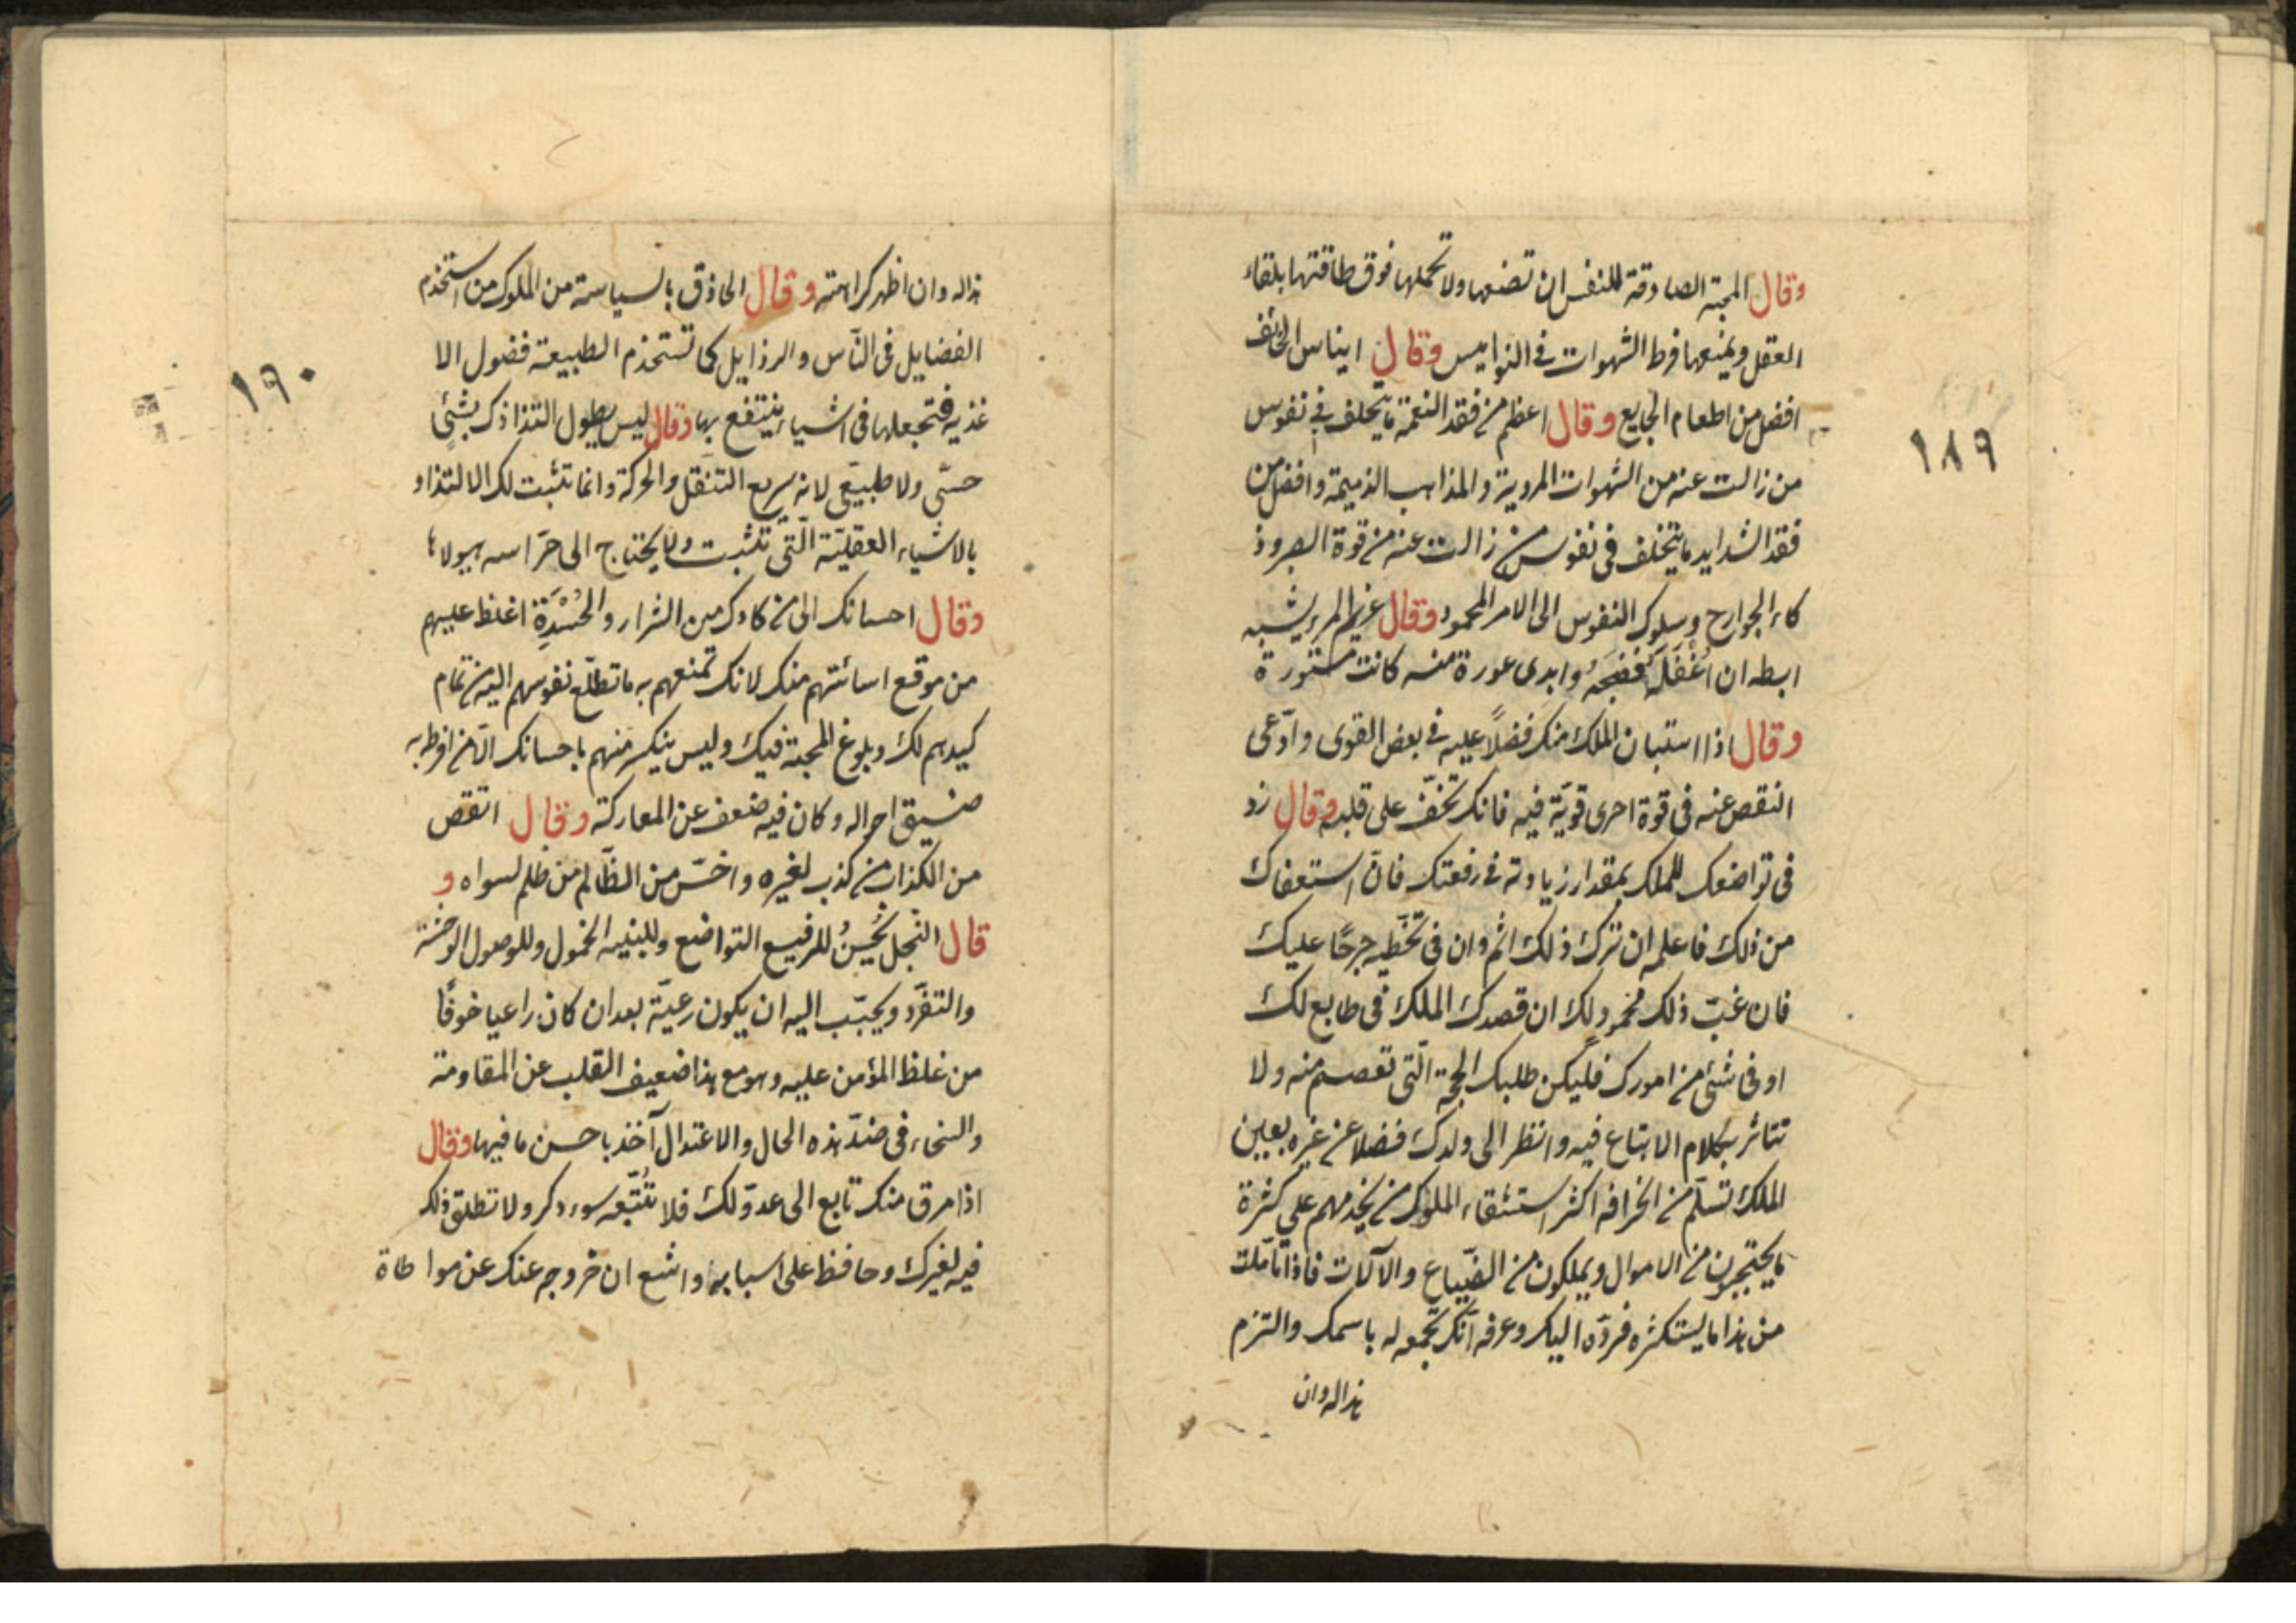 وقال المحبة الصادقة للنفس ان تضنها ولا تحملها فوق طاقتها بلقاء
العقل ويمنعها فرط الشهوات فى النواميس وقال ايناس الخائف
افضل من اطعام الجايع وقال اعظم من فقد النعمة ما يتخلف فى نفوس
من زالت عنه من الشهوات المردية والمذاهب الذميمة وافضل من
فقد الشدايد ما يتخلف فى نفوس من زالت عنه من قوة الصبر وذ
كاء الجوارح وسلوك النفوس الى الامر المحمود وقال غريم المرء يشبه
ابطه ان اغفله فضحه وابدى عورة منه كانت مستورة
وقال اذا استبان الملك منك فضلاً عليه فى بعض القوى وادّعى
النقص عنه فى قوة اخرى قويّة فيه فانك تخفّ على قلبه وقال زد
فى تواضعك للملك بمقدار زيادته فى رفعتك فانّ استعفاك
من ذلك فاعلمه ان ترك ذلك اثم وان فى تخطّيه حرجًا عليك
فان غبّ ذلك محمود لك ان قصدك الملك فى طابع لك
او فى شئ من امورك فليكن طلبك الحجة الّتى تعصم منه ولا
تتاثر بكلام الابتاع فيه وانظر الى ولدك فضلا عن غيره بعين
الملك تسلم من انحرافه اكثر استثقاء الملوك من يخدمهم على كثرة
ما يحتجبون من الاموال ويملكون من الضّياع والآلات فاذا تاملت
من هذا ما يستكثره فردّه اليك وعرفه انّك تجمعه له باسمك والتزم
هذا له وان
١٨٩
هذا له وان اظهر كراهته وقال الحاذق بالسياسة من الملوك من استخدم
الفضايل فى النّاس والرذايل كما تستخدم الطبيعة فضول الا
غذيه فتجعلها فى اشياء ينتفع بها وقال ليس يطول التذاذك بشئٍ
حسّى ولا طبيعى لانه سريع التنقل والحركة وانما تثبت لك الالتذاذ
بالاشياء العقليّة الّتى تثبت ولا يحتاج الى حرّاسه هيولاها
وقال احسانك الى من كادك من الشرار والحسدة اغلظ عليهم
من موقع اسائتهم منك لانك تمنعهم به ما تطلّع نفوسهم اليه من تمام
كيدهم لك وبلوغ المحبة فيك وليس ينكسر منهم باحسانك الّا من افرط به
ضيق احواله وكان فيه ضعف عن المعاركة وقال انقص
من الكذاب من كذب لغيره واخسّ من الظّالم من ظلم لسواه و
قال النجل يحسن للرفيع التواضع وللنبيه الخمول وللوصول الوحشة
والتفرّد ويحبّب اليه ان يكون رعيّة بعد ان كان راعيا خوفًا
من غلظ المؤمن عليه وهو مع هذا ضعيف القلب عن المقاومة
والسخاء فى ضدّ هذه الحال والاعتدال آخذ باحسن ما فيها وقال
اذا مرق منك تابع الى عدوّ لك فلا تتّبعه سوء ذكر ولا تطلق ذلك
فيه لغيرك وحافظ على اسبابه واشع ان خروجه عنك عن مواطاة
١٩٠